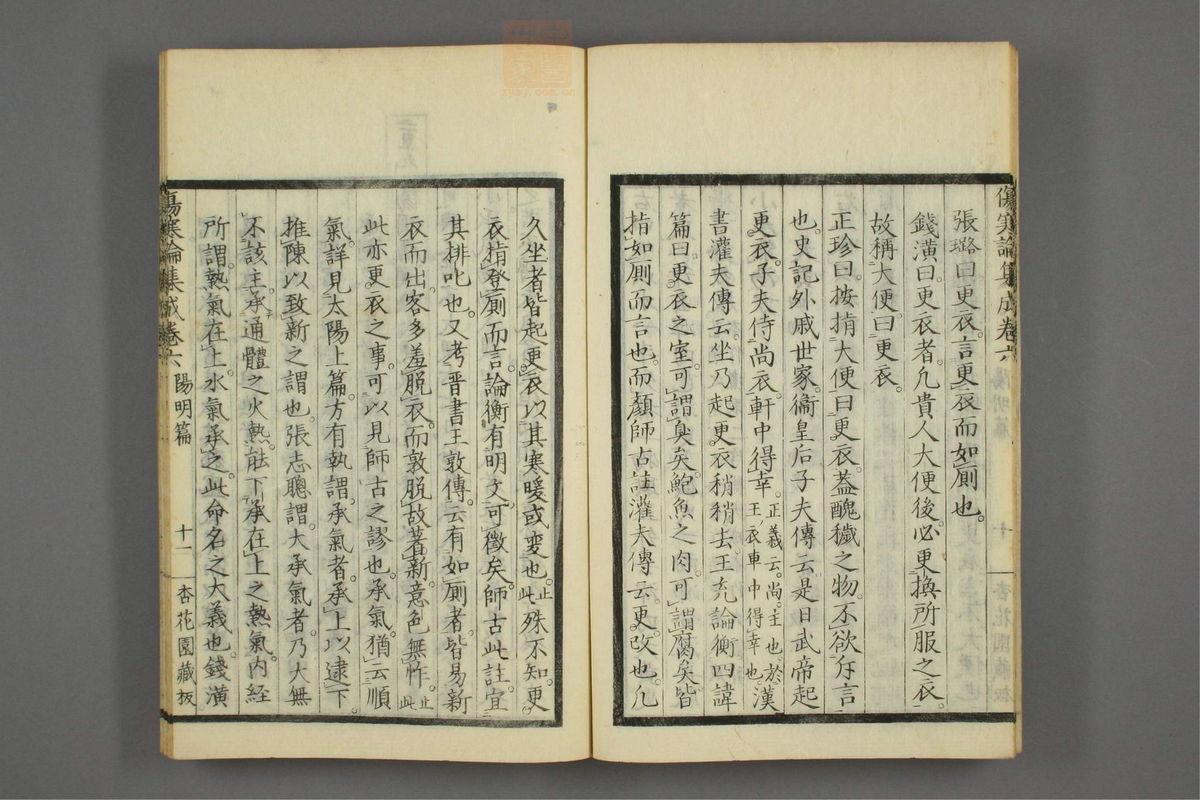 傷寒論集成卷六
張璐曰。更衣。言更衣而如厠也。
錢潢曰。更衣者。凡貴人大便後。必更換所服之衣。
故稱大便。曰更衣。
正珍曰。按揹大便曰更衣。蓋醜穢之物。不欲斥言
也。史記外戚世家。衞皇后子夫傳云。是日武帝起
更衣。子夫侍尚衣。軒中得幸。正義云。尚。主也。於主衣車中得幸也。漢
書灌夫傳云。坐乃起更衣。稍稍去。王充論衡四諱
篇曰。更衣之室。可謂臭矣。鮑魚之肉。可謂腐矣。皆
指如厠而言也。而顏師古註灌夫傳云。更。改也。凡
久坐者。皆起更衣。以其寒暖或變也。止此。殊不知。更
衣揹登厠而言。論衡有明文。可徵矣。師古此註。宜
其排叱也。又考晉書王敦傳。云有如厠者。皆易新
衣而出。客多羞脱衣。而敦脱故著新。意色無怍。止此
此亦更衣之事。可以見師古之謬也。承氣。猶云順
氣。詳見太陽上篇。方有執謂。承氣者。承上以逮下。
推陳以致新之謂也。張志聰謂。大承氣者。乃大無
不該。主承通體之火熱。能下承在上之熱氣。内經
所謂熱氣在上。水氣承之。此命名之大義也。錢潢
傷寒論集成卷六 陽明篇 十一 杏花園藏板